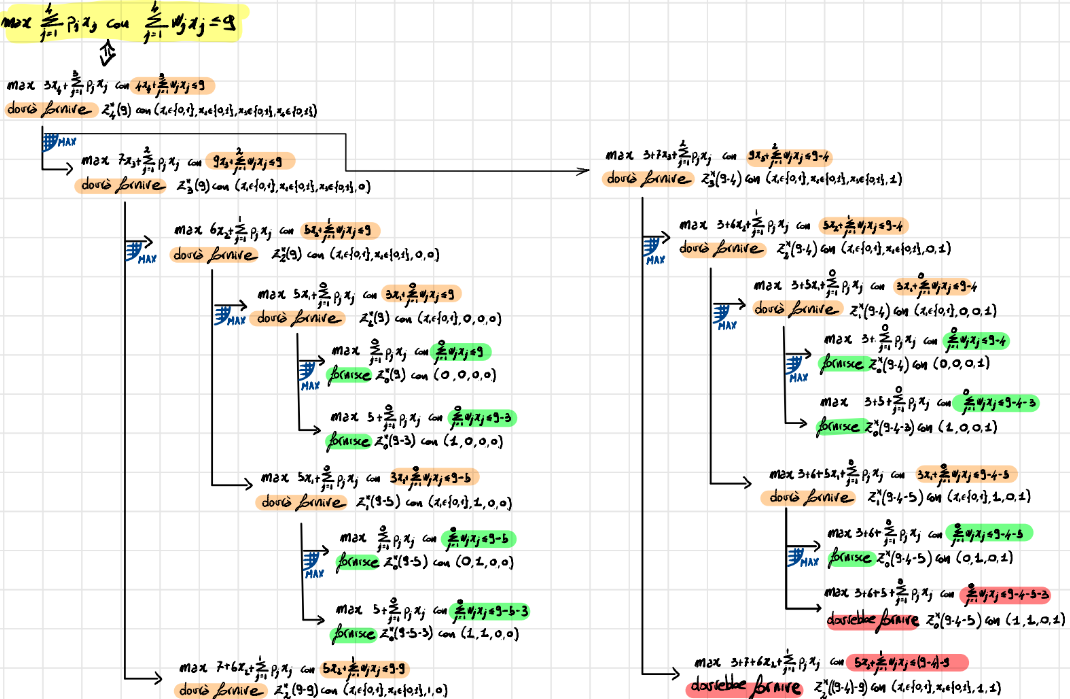 max ∑_{j=1}^{4} p_j x_j con ∑_{j=1}^{4} w_j x_j ≤ 9
max 3x_4 + ∑_{j=1}^{3} p_j x_j con 4x_4 + ∑_{j=1}^{3} w_j x_j ≤ 9
dovrà fornire Z_4^*(9) con (x_1∈{0,1}, x_2∈{0,1}, x_3∈{0,1}, x_4∈{0,1})
MAX
max 7x_3 + ∑_{j=1}^{2} p_j x_j con 9x_3 + ∑_{j=1}^{2} w_j x_j ≤ 9
dovrà fornire Z_3^*(9) con (x_1∈{0,1}, x_2∈{0,1}, x_3∈{0,1}, 0)
MAX
max 6x_2 + ∑_{j=1}^{1} p_j x_j con 5x_2 + ∑_{j=1}^{1} w_j x_j ≤ 9
dovrà fornire Z_2^*(9) con (x_1∈{0,1}, x_2∈{0,1}, 0, 0)
MAX
max 5x_1 + ∑_{j=1}^{0} p_j x_j con 3x_1 + ∑_{j=1}^{0} w_j x_j ≤ 9
dovrà fornire Z_2^*(9) con (x_1∈{0,1}, 0, 0, 0)
MAX
max ∑_{j=1}^{0} p_j x_j con ∑_{j=1}^{0} w_j x_j ≤ 9
fornisce Z_0^*(9) con (0, 0, 0, 0)
max 5 + ∑_{j=1}^{0} p_j x_j con ∑_{j=1}^{0} w_j x_j ≤ 9-3
fornisce Z_0^*(9-3) con (1, 0, 0, 0)
max 5x_1 + ∑_{j=1}^{0} p_j x_j con 3x_1 + ∑_{j=1}^{0} w_j x_j ≤ 9-5
dovrà fornire Z_1^*(9-5) con (x_1∈{0,1}, 1, 0, 0)
MAX
max ∑_{j=1}^{0} p_j x_j con ∑_{j=1}^{0} w_j x_j ≤ 9-5
fornisce Z_0^*(9-5) con (0, 1, 0, 0)
max 5 + ∑_{j=1}^{0} p_j x_j con ∑_{j=1}^{0} w_j x_j ≤ 9-5-3
fornisce Z_0^*(9-5-3) con (1, 1, 0, 0)
max 7+6x_2 + ∑_{j=1}^{1} p_j x_j con 5x_2 + ∑_{j=1}^{1} w_j x_j ≤ 9-9
dovrà fornire Z_2^*(9-9) con (x_1∈{0,1}, x_2∈{0,1}, 1, 0)
max 3+7x_3 + ∑_{j=1}^{2} p_j x_j con 9x_3 + ∑_{j=1}^{2} w_j x_j ≤ 9-4
dovrà fornire Z_3^*(9-4) con (x_1∈{0,1}, x_2∈{0,1}, x_3∈{0,1}, 1)
MAX
max 3+6x_2 + ∑_{j=1}^{1} p_j x_j con 5x_2 + ∑_{j=1}^{1} w_j x_j ≤ 9-4
dovrà fornire Z_2^*(9-4) con (x_1∈{0,1}, x_2∈{0,1}, 0, 1)
MAX
max 3+5x_1 + ∑_{j=1}^{0} p_j x_j con 3x_1 + ∑_{j=1}^{0} w_j x_j ≤ 9-4
dovrà fornire Z_1^*(9-4) con (x_1∈{0,1}, 0, 0, 1)
MAX
max 3 + ∑_{j=1}^{0} p_j x_j con ∑_{j=1}^{0} w_j x_j ≤ 9-4
fornisce Z_0^*(9-4) con (0, 0, 0, 1)
max 3+5 + ∑_{j=1}^{0} p_j x_j con ∑_{j=1}^{0} w_j x_j ≤ 9-4-3
fornisce Z_0^*(9-4-3) con (1, 0, 0, 1)
max 3+6+5x_1 + ∑_{j=1}^{0} p_j x_j con 3x_1 + ∑_{j=1}^{0} w_j x_j ≤ 9-4-5
dovrà fornire Z_1^*(9-4-5) con (x_1∈{0,1}, 1, 0, 1)
MAX
max 3+6 + ∑_{j=1}^{0} p_j x_j con ∑_{j=1}^{0} w_j x_j ≤ 9-4-5
fornisce Z_0^*(9-4-5) con (0, 1, 0, 1)
max 3+6+5 + ∑_{j=1}^{0} p_j x_j con ∑_{j=1}^{0} w_j x_j ≤ 9-4-5-3
dovrebbe fornire Z_0^*(9-4-5) con (1, 1, 0, 1)
max 3+7+6x_2 + ∑_{j=1}^{1} p_j x_j con 5x_2 + ∑_{j=1}^{1} w_j x_j ≤ (9-4)-9
dovrebbe fornire Z_2^*((9-4)-9) con (x_1∈{0,1}, x_2∈{0,1}, 1, 1)